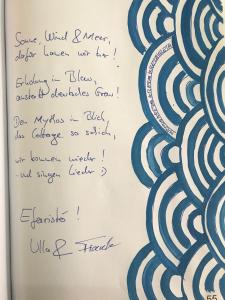 Sonne, Wind & Meer,
dafür kamen wir her!
Erholung in Blau,
anstatt deutsches Grau!
Den Mythos im Blick,
das Cottage so schick,
wir kommen wieder!
und singen Lieder :)
Efaristó!
Ulla &
55